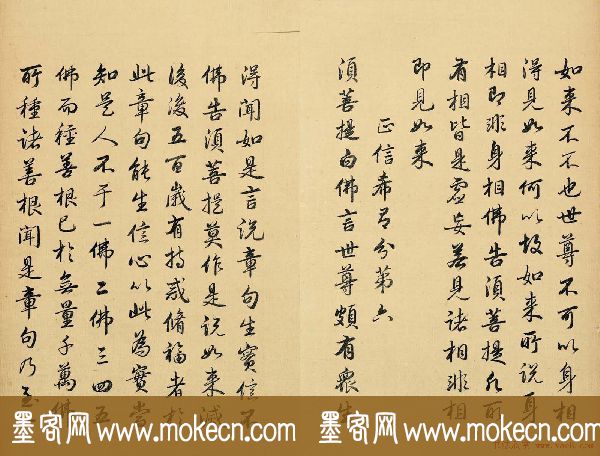 如来不不也世尊不可以身相
得见如来何以故如来所说身
相即非身相佛告须菩提凡所
有相皆是虚妄若见诸相非相
即见如来
正信希有分第六
须菩提白佛言世尊颇有众生
得闻如是言说章句生实信不
佛告须菩提莫作是说如来灭
后后五百岁有持戒修福者于
此章句能生信心以此为实当
知是人不于一佛二佛三四五
佛而种善根已于无量千万佛
所种诸善根闻是章句乃至
墨客网 www.mokecn.com
墨客网 www.mokecn.com